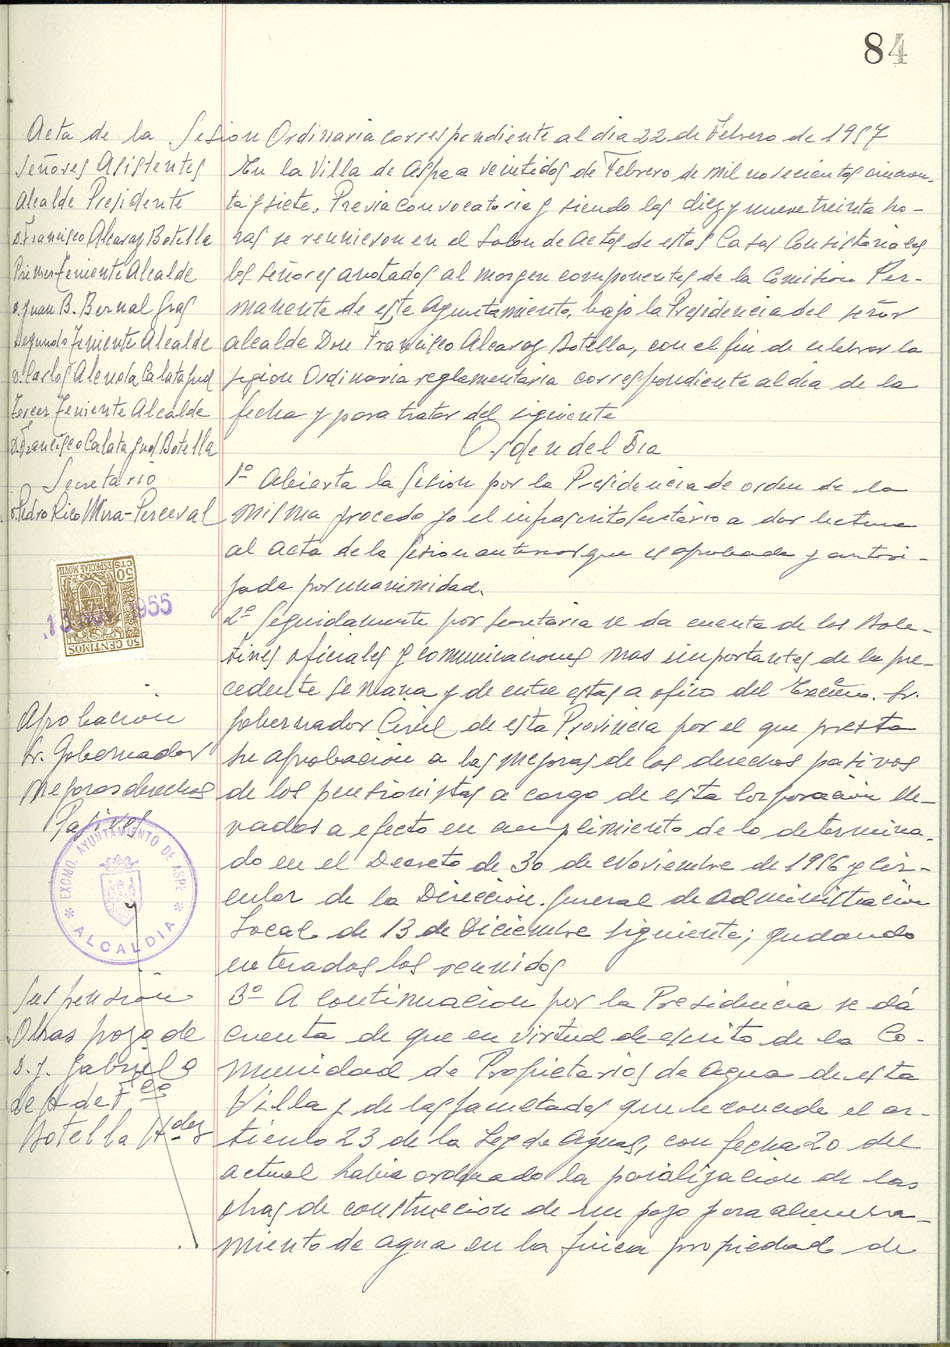 84
Acta de la Sesion Ordinaria correspondiente al dia 22 de Febrero de 1957
Señores Asistentes
Alcalde Presidente
D. Francisco Alcaraz Botella
Primer Teniente Alcalde
D. Juan B. Bernal Gras
Segundo Teniente Alcalde
D. Carlos Alenda Calatayud
Tercer Teniente Alcalde
D. Francisco Calatayud Botella
Secretario
D. Pedro Rico Mira-Perceval
En la Villa de Aspe a veintidos de Febrero de mil novecientos cincuen-
ta y siete. Previa convocatoria y siendo las diez y nueve treinta ho-
ras se reunieron en el Salon de Actos de estas Casas Consistoriales
los señores anotados al margen componentes de la Comision Per-
manente de este Ayuntamiento, bajo la Presidencia del señor
alcalde Don Francisco Alcaraz Botella, con el fin de celebrar la
sesion Ordinaria reglamentaria correspondiente al dia de la
fecha y para tratar del siguiente
Orden del Dia
1º Abierta la Sesion por la Presidencia de orden de la
misma procedo yo el infrascrito Secretario a dar lectura
al acta de la sesion anterior que es aprobada y autori-
zada por unanimidad.
2º Seguidamente por Secretaria se da cuenta de los Bole-
tines oficiales y comunicaciones mas importantes de la pre-
cedente semana y de entre estas a ofico del Excmo. Sr.
Gobernador Civil de esta Provincia por el que presta
su aprobacion a las mejoras de los derechos pasivos
de los pensionistas a cargo de esta Corporacion lle-
vados a efecto en cumplimiento de lo determina-
do en el Decreto de 30 de Noviembre de 1956 y Cir-
cular de la Direccion General de Administración
Local de 13 de Diciembre siguiente; quedando
enterados los reunidos
3º A continuacion por la Presidencia se dá
cuenta de que en virtud de escrito de la Co-
munidad de Propietarios de Agua de esta
Villa y de las facultades que le concede el ar-
ticulo 23 de la Ley de Aguas, con fecha 20 del
actual habia ordenado la paralizacion de las
obras de construccion de un pozo para alumbra-
miento de agua en la finca propiedad de
50 CTS ESPECIAL MOVIL
50 CENTIMOS
13 1955
Aprobacion
Sr. Gobernador
mejoras derechos
Pasivos
EXCMO. AYUNTAMIENTO DE ASPE
* ALCALDIA *
Suspensión
Obras pozo de
D. J. Gabriel
de A de Fco
Botella Hdez